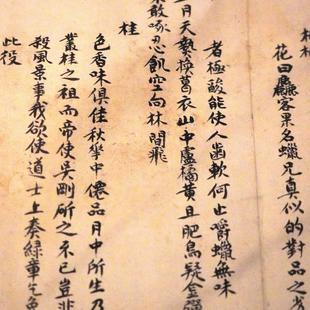 枇杷
花曰麤客果名蠟兄真似的對品之劣
者極酸能使人齒軟何止嚼蠟無味
月天熱揮葛衣山中盧橘黃且肥鳥疑金彈
敢啄忍飢空向林間飛
桂
色香味俱佳秋華中僊品月中所生乃
叢桂之祖而帝使吳剛斫之不已豈非
殺風景事我欲使道士上奏綠章乞免
此役